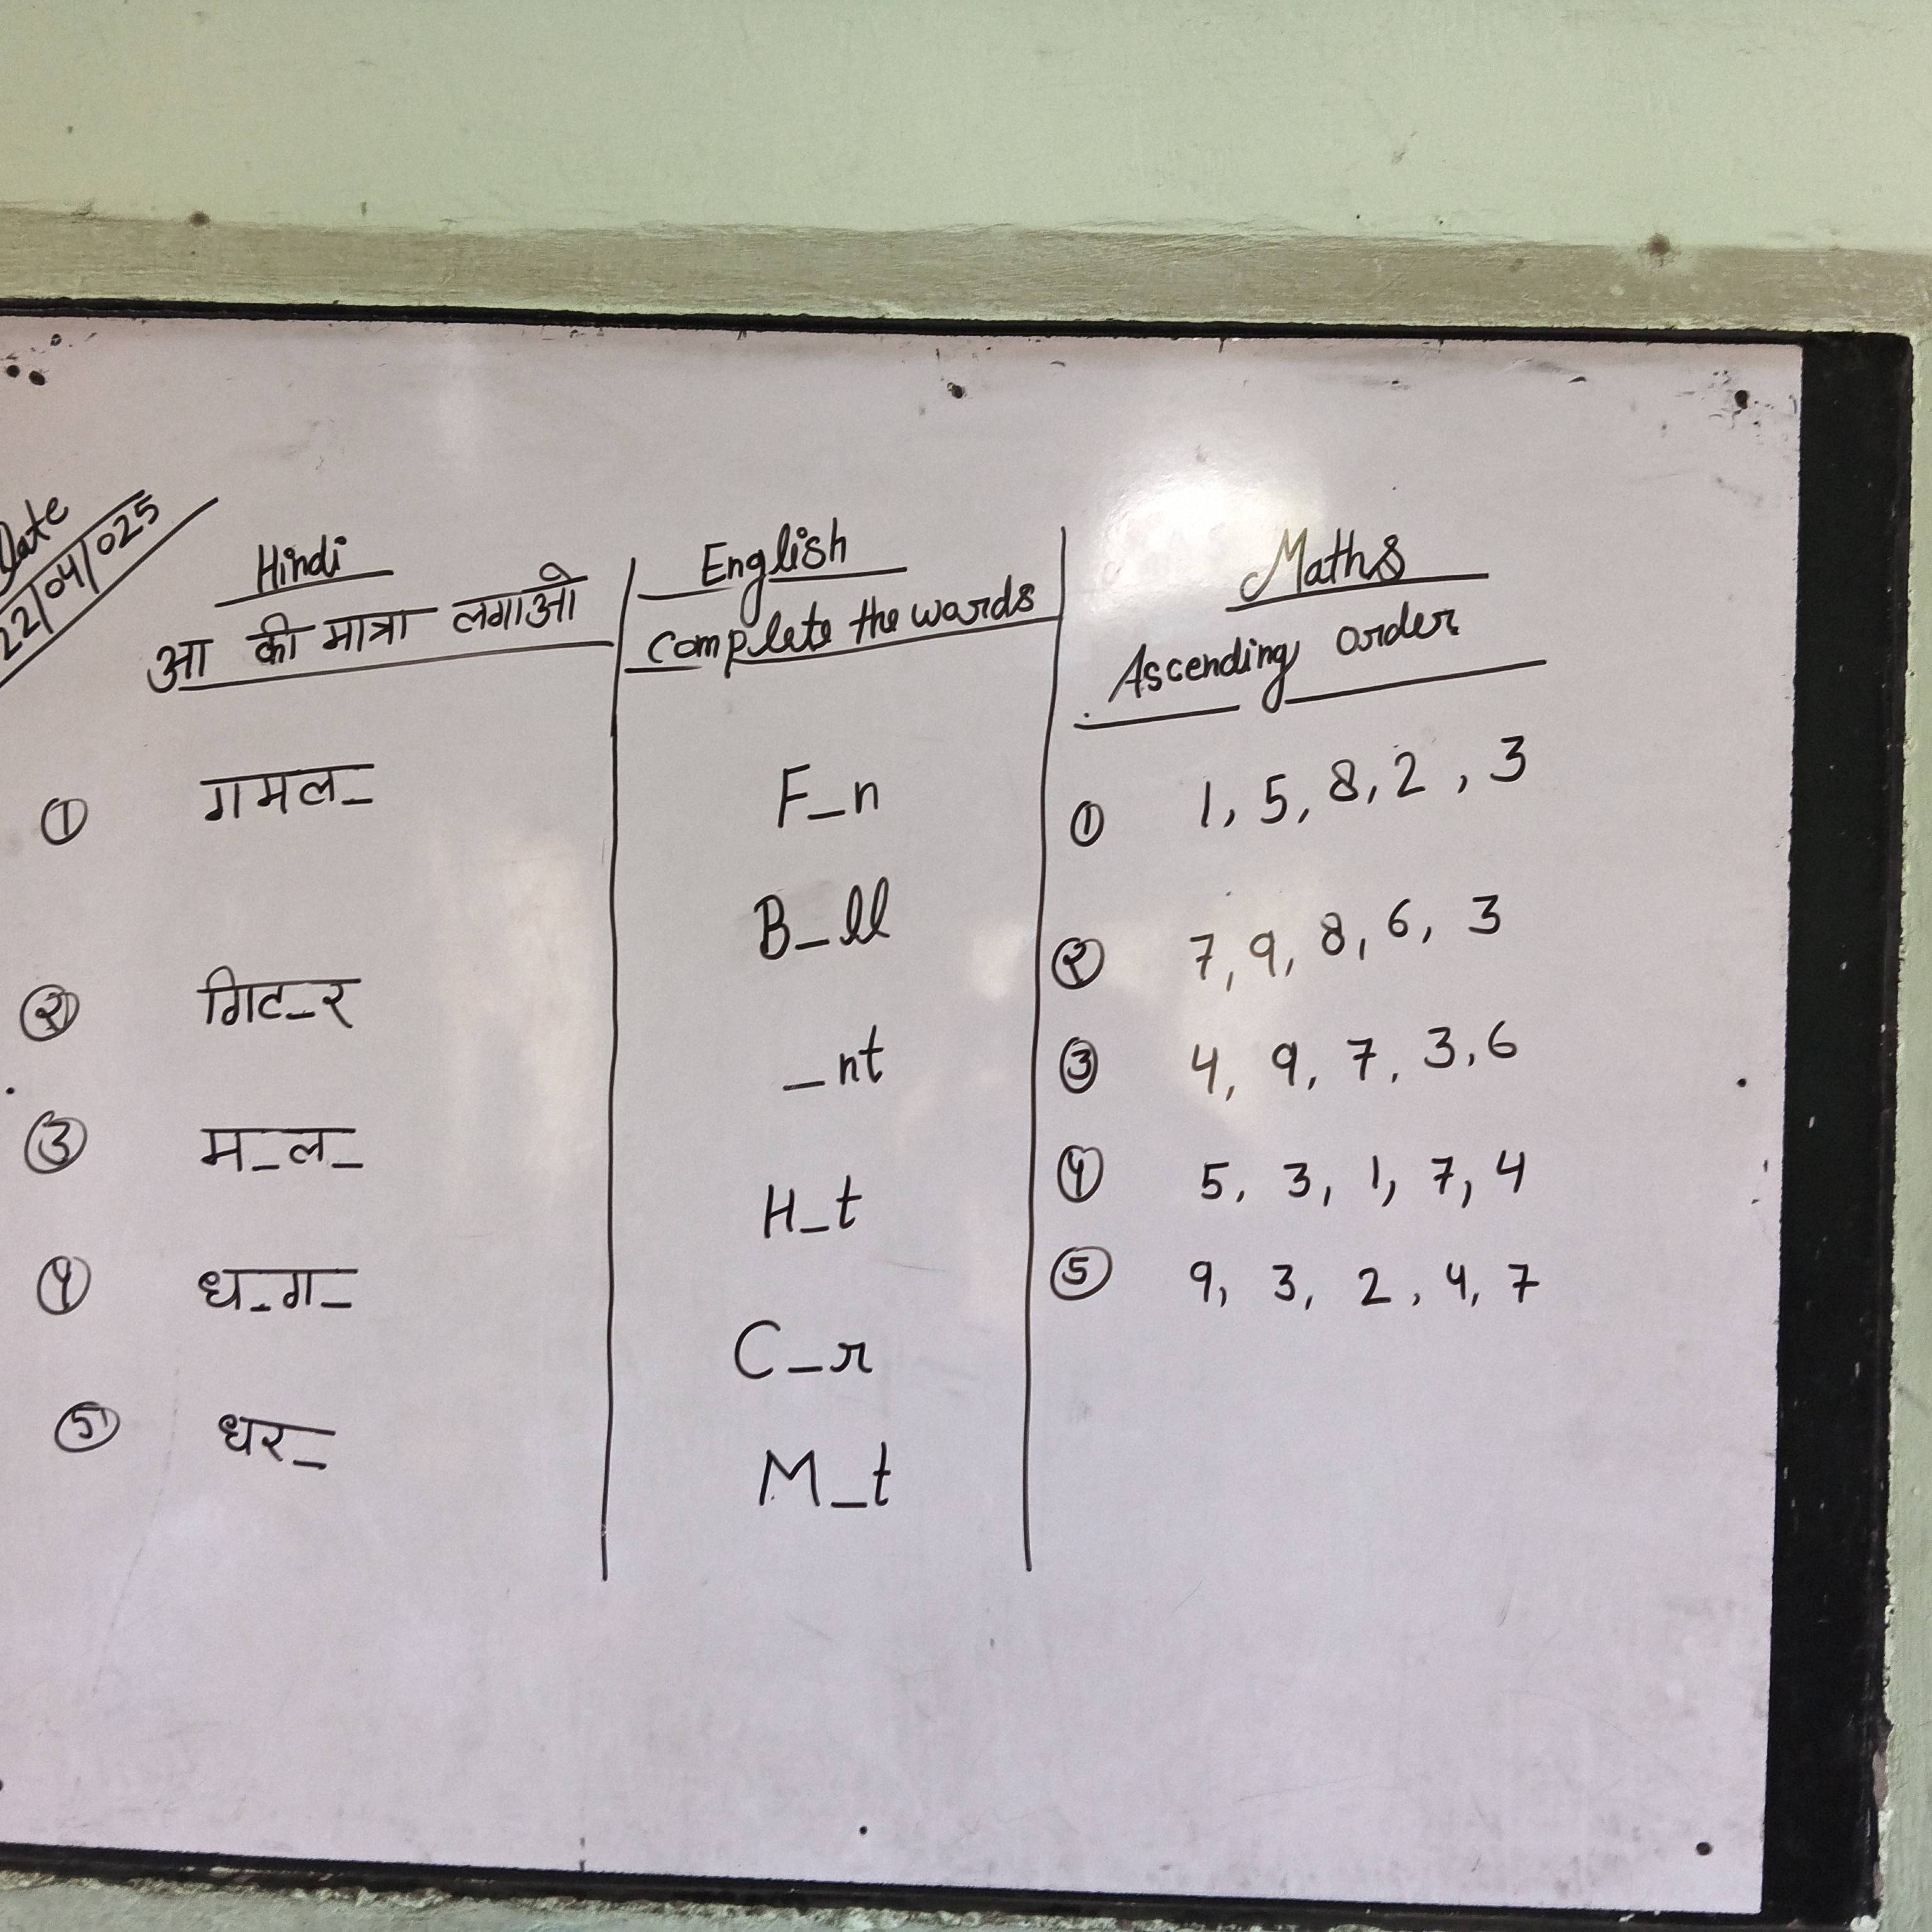 Date
22/04/025
Hindi
आ की मात्रा लगाओ
① गमल_
② गिट_र
③ म_ल_
④ ध_ग_
⑤ धर_
English
Complete the words
F_n
B_ll
_nt
H_t
C_r
M_t
Maths
Ascending order
① 1, 5, 8, 2, 3
② 7, 9, 8, 6, 3
③ 4, 9, 7, 3, 6
④ 5, 3, 1, 7, 4
⑤ 9, 3, 2, 4, 7